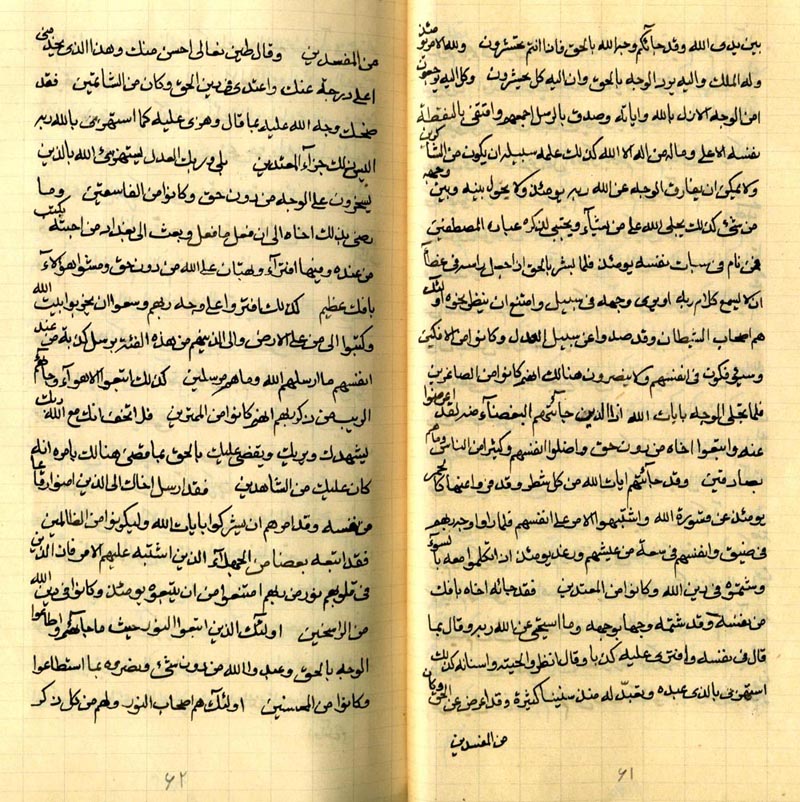 بين يدى الله وقد جائكم وجه الله بالحق فاذا انتم تحشرون ولله الامر يومئذ
وله الملك واليه يرد الوجه بالحق وان اليه كل يحشرون وكل اليه يرجعون
امن الوجه الاول بالله واياته وصدق بالرسل اجمعهم واقتفى بالنقطة
نفسه الاعلى وماله من اله الا الله كذلك علمه سبيله ان يكون من الشاكرين
ولا يمكن ان يفارق الوجه عن الله ربه يومئذ ولا يحول بينه وبين وجهه
من شئ كذلك يجلى الله على من يشاء ويجتبى لذكره عباده المصطفين
فى نفسه يومئذ فلما بالحق اذا
ان لا يسمع كلام ربه او يرى وجهه فى سبيل وامتنع ان ينظر نحوه اولئك
هم اصحاب الشيطان وقد صدوا عن سبيل العدل وكانوا من الافكين
وسيوفكون فى انفسهم ولا ينصرون هنالك انهم كانوا من الصاغرين
فلما تجلى الوجه بايات الله اذا الذين جائتهم البغضاء اعرضوا
عنه واتبعوا اخاه من دون حق واضلوا انفسهم وكثيرا من الناس وما هم
بصادقين وقد جائتهم ايات الله من كل شطر وقد
يومئذ عن الله واشتبهوا الامر على انفسهم فلما راوا وجه ربهم
فى ضيق وانفسهم فى سعة من عيشهم ورغد يومئذ اذا تكلموا معه بالسوء
وشتموه فى دين الله وكانوا من المعتدين فقد جائه اخاه بافك
من نفسه وقد شتمه وجها بوجهه وما استحيى عن الله ربه وقال بما
قال فى نفسه وافترى عليه كذبا وقال انظروا لحيته واسنانه كذلك
استهزئ بالذى عبده له منذ سنينا كثيرة وقد اعرض عن الحق وكان
من المفسدين
٦١
من المفسدين وقال طين تعالى احسن منك وهذا الذى
اعلى درجة عنك واعتدى فى دين الحق وكان من الشاتمين فقد
ضحك وجه الله عليه بما قال وهوى عليه كما استهزئ بالله ربه
اليس ذلك جزاء المعتدين بلى وربك العدل يستهزئ الله بالذين
يسخرون على الوجه من دون حق وكانوا من الفاسقين وما
رضى بذلك اخاه الى ان فعل ما فعل وبعث الى بغداد من احبته بكتب
من عنده وفيها افتراء وبهتان على الله من دون حق ومشوا هؤلاء
بافك عظيم كذلك افتروا على وجه ربهم وسعوا ان يخربوا بيت الله
وكتبوا الى من على الارض والى الذينهم من هذه الفئة برسل كذبة من عند
انفسهم ما ارسلهم الله وما هم مرسلين كذلك اتبعوا الاهواء وجائهم
الريب من ذكر ربهم انهم كانوا من الممترين فلا تخف انك مع الله ربك
ليشهدك ويريك ويقضى عليك بالحق بما قضى هنالك بامره انه
كان عليك من الشاهدين فقد ارسل اخاك الى الذين امنوا رقاعا
من نفسه وقد امرهم ان يشركوا بايات الله وليكونوا من الظالمين
فقد اتبعه بعضا من الجهلاء الذين اشتبه عليهم الامر فان الذين
فى قلوبهم نور من ربهم امتنعوا من ان يتبعوه يومئذ وكانوا فى دين الله
من الراسخين اولئك الذين اتبعوا النور حيث ما جائهم واطاعوا
الوجه بالحق وعبدوا الله من دون شئ ونصروه بما استطاعوا
وكانوا من المحسنين اولئك هم اصحاب النور ولهم من كل ذكر
٦٢